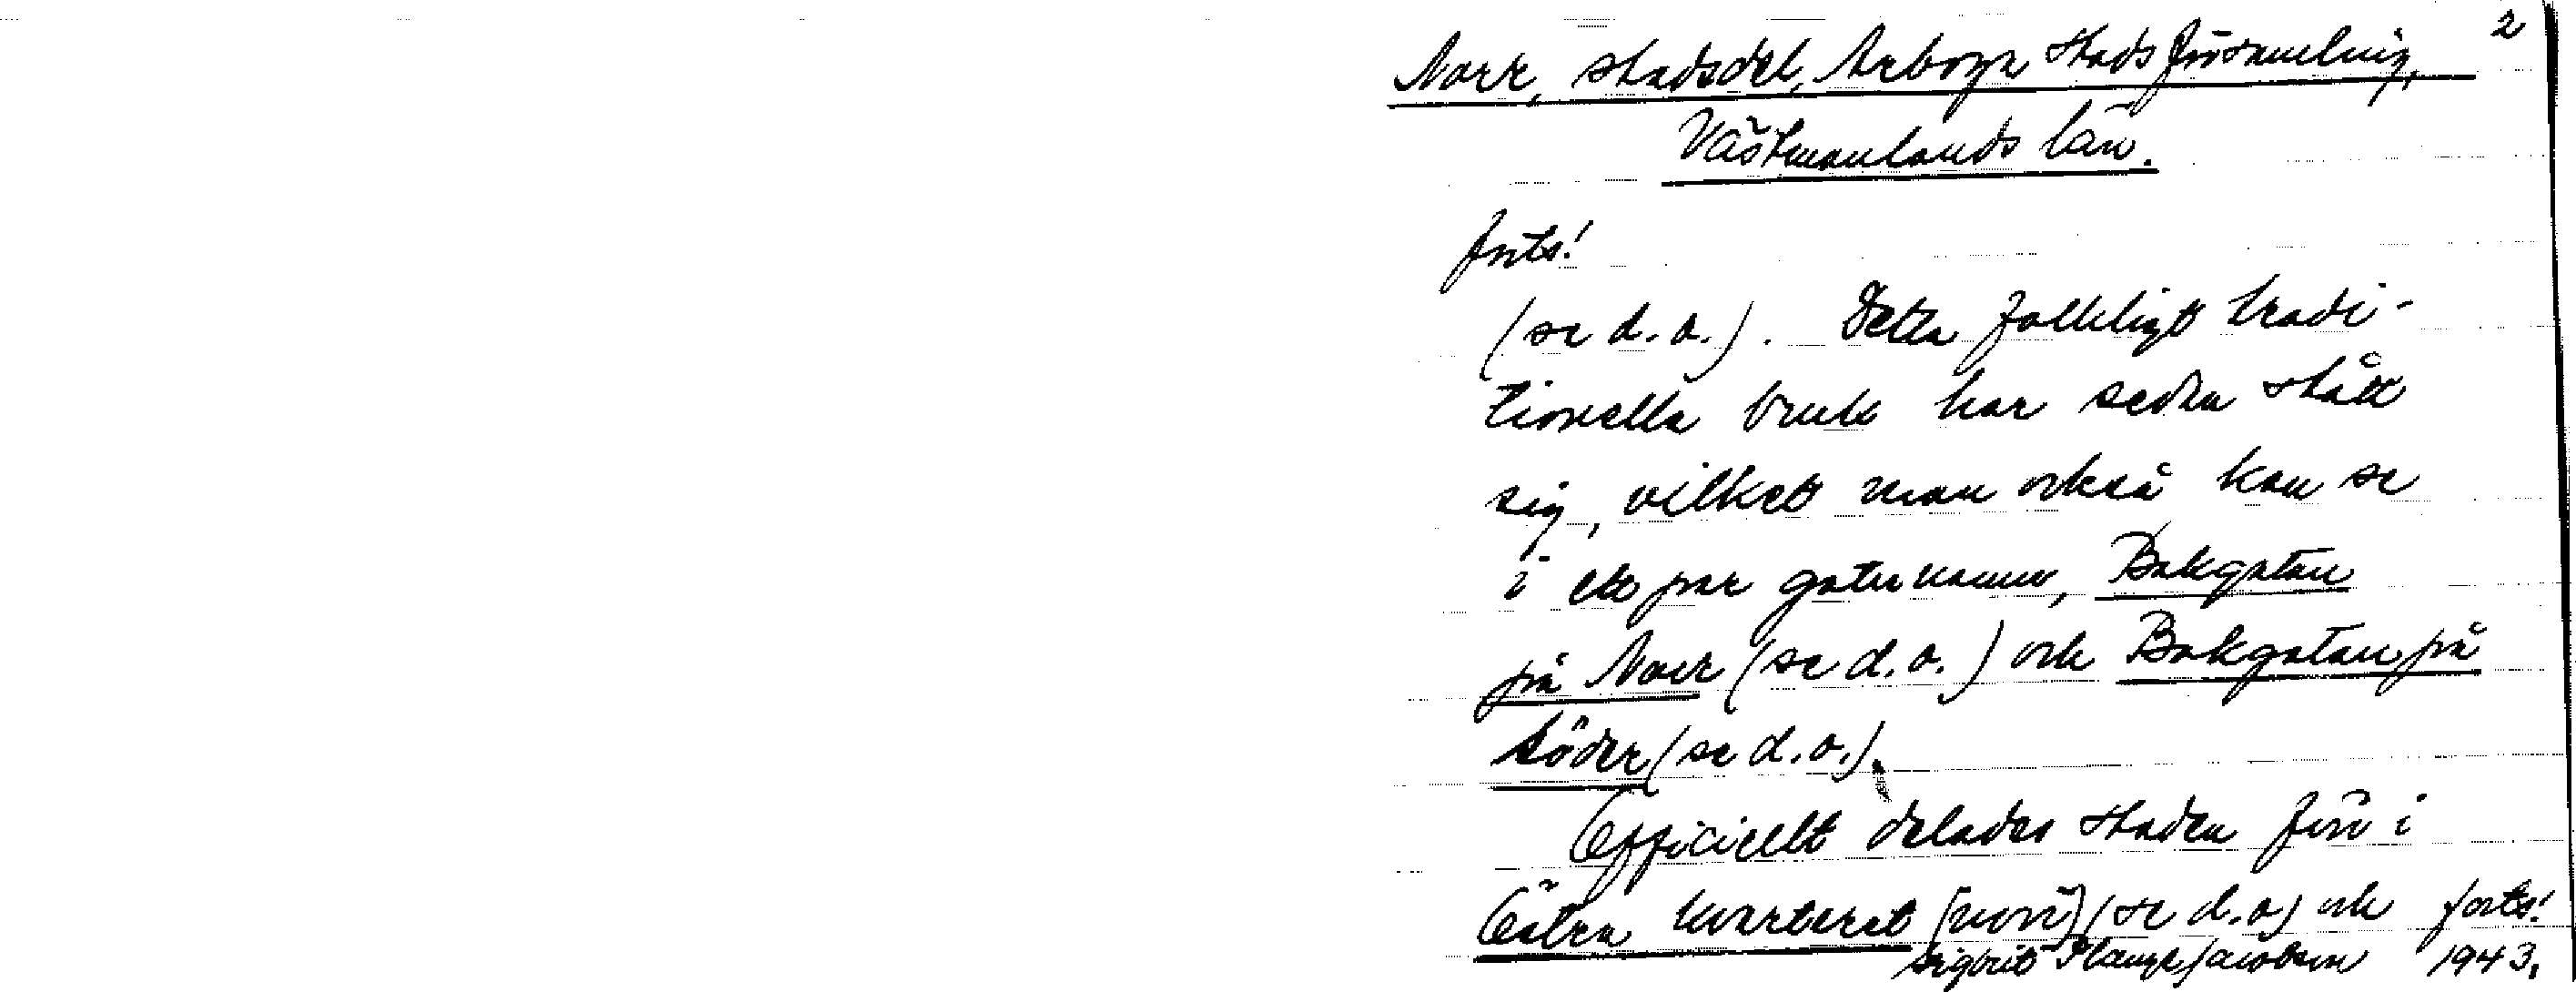 2
Norr, stadsdel, Arboga stadsförsamling,
Västmanlands län.
forts!
(se d.o.). Detta folkligt tradi-
tionella bruk har sedan stått
sig, vilket man också kan se
i ett par gatunamn, Bakgatan
på Norr (se d.o.) och Bakgatan på
Söder (se d.o.).
Officiellt delades staden förr i
Östra kvarteret [norr] (se d.o) och forts!
Sigbrit Plænge Jacobson 1943.